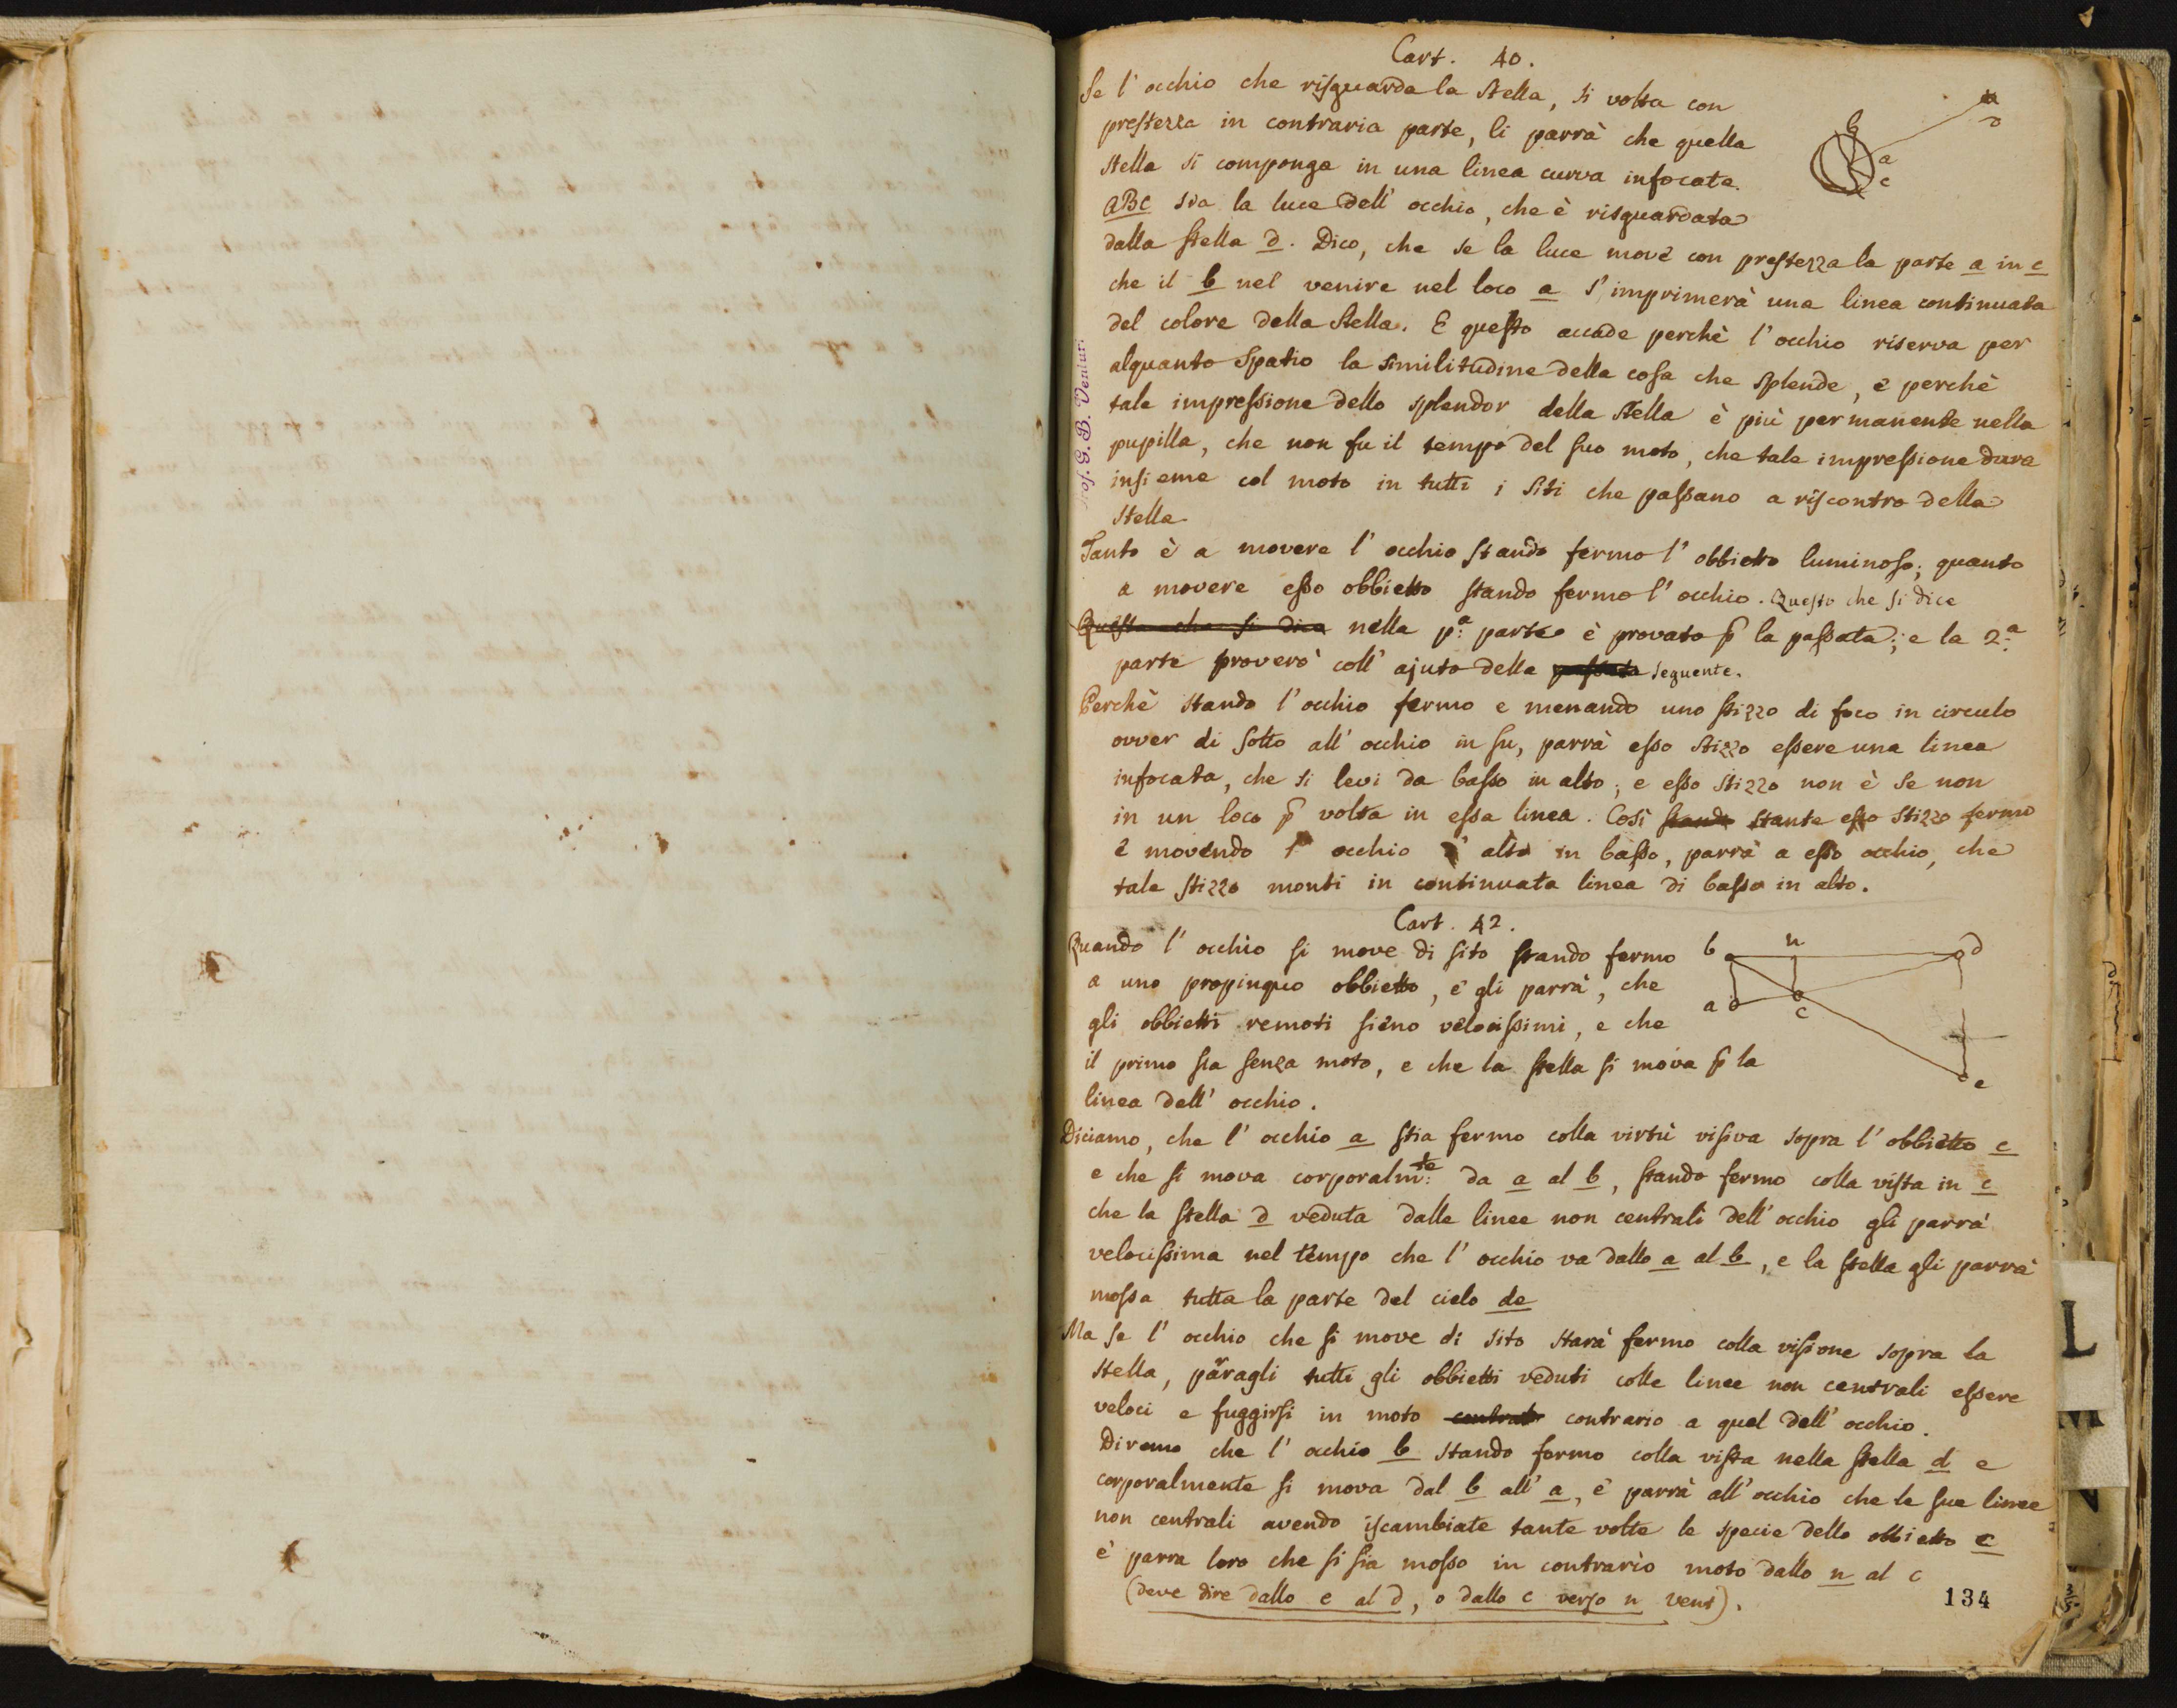 Cart. 40.
Se l'occhio che risguarda la stella, si volta con
prestezza in contraria parte, li parrà che quella
stella si componga in una linea curva infocata.
aBc sia la luce dell'occhio, che è risguardata
dalla stella d. Dico, che se la luce move con prestezza la parte a in c
che il b nel venire nel loco a s'imprimerà una linea continuata
del colore della stella. E questo accade perchè l'occhio riserva per
alquanto spatio la similitudine della cosa che splende, e perchè
tale impressione dello splendor della stella è più permanente nella
pupilla, che non fu il tempo del suo moto, che tale impressione dura
insieme col moto in tutti i siti che passano a riscontro della
stella.
Tanto è a movere l'occhio stando fermo l'obbietto luminoso; quanto
a movere esso obbietto stando fermo l'occhio. Questo che si dice
Questo che si dice nella pª: parte è provato p̄ la passata; e la 2ª:
parte proverò coll'ajuto della passata seguente.
Perchè stando l'occhio fermo e menando uno stizzo di foco in circulo
ovver di sotto all'occhio in su, parrà esso stizzo essere una linea
infocata, che si levi da basso in alto; e esso stizzo non è se non
in un loco p̄ volta in essa linea. Così stando stante esso stizzo fermo
e movendo l'occhio d'alto in basso, parrà a esso occhio, che
tale stizzo monti in continuata linea di basso in alto.
b
a
c
d
Prof. G. B. Venturi
Cart. 42.
Quando l'occhio si move di sito stando fermo
a uno propinquo obbietto, e' gli parrà, che
gli obbietti remoti sieno velocissimi, e che
il primo sia senza moto, e che la stella si mova p̄ la
linea dell'occhio.
b n d
a c
e
Diciamo, che l'occhio a stia fermo colla virtù visiva sopra l'obbietto c
e che si mova corporalmte: da a al b, stando fermo colla vista in c
che la stella d veduta dalle linee non centrali dell'occhio gli parrà
velocissima nel tempo che l'occhio va dallo a al b, e la stella gli parrà
mossa tutta la parte del cielo de
Ma se l'occhio che si move di sito starà fermo colla visione sopra la
stella, parragli tutti gli obbietti veduti colle linee non centrali essere
veloci e fuggirsi in moto contrario a quel dell'occhio.
Diremo che l'occhio b stando fermo colla vista nella stella d e
corporalmente si mova dal b all'a, e' parrà all'occhio che le sue linee
non centrali avendo iscambiate tante volte le specie dello obbietto c
e' parra loro che si sia mosso in contrario moto dallo n al c
(deve dire dallo e al d, o dallo c verso n Vent).
134
L
M
N